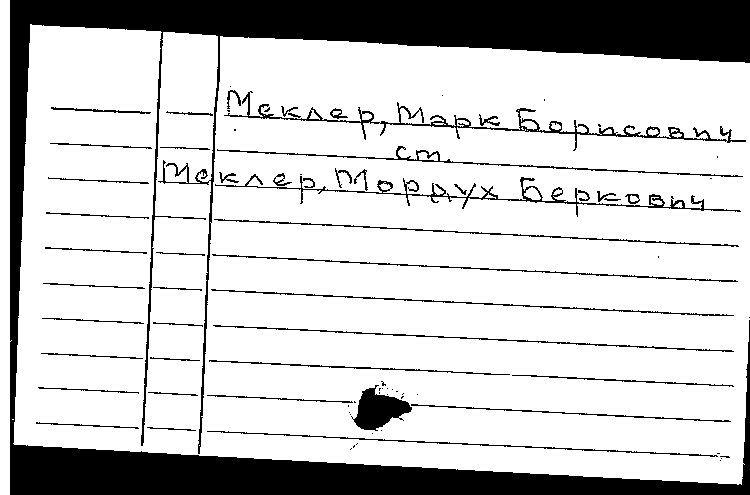 Меклер, Марк Борисович
ст.
Меклер, Мордух Беркович